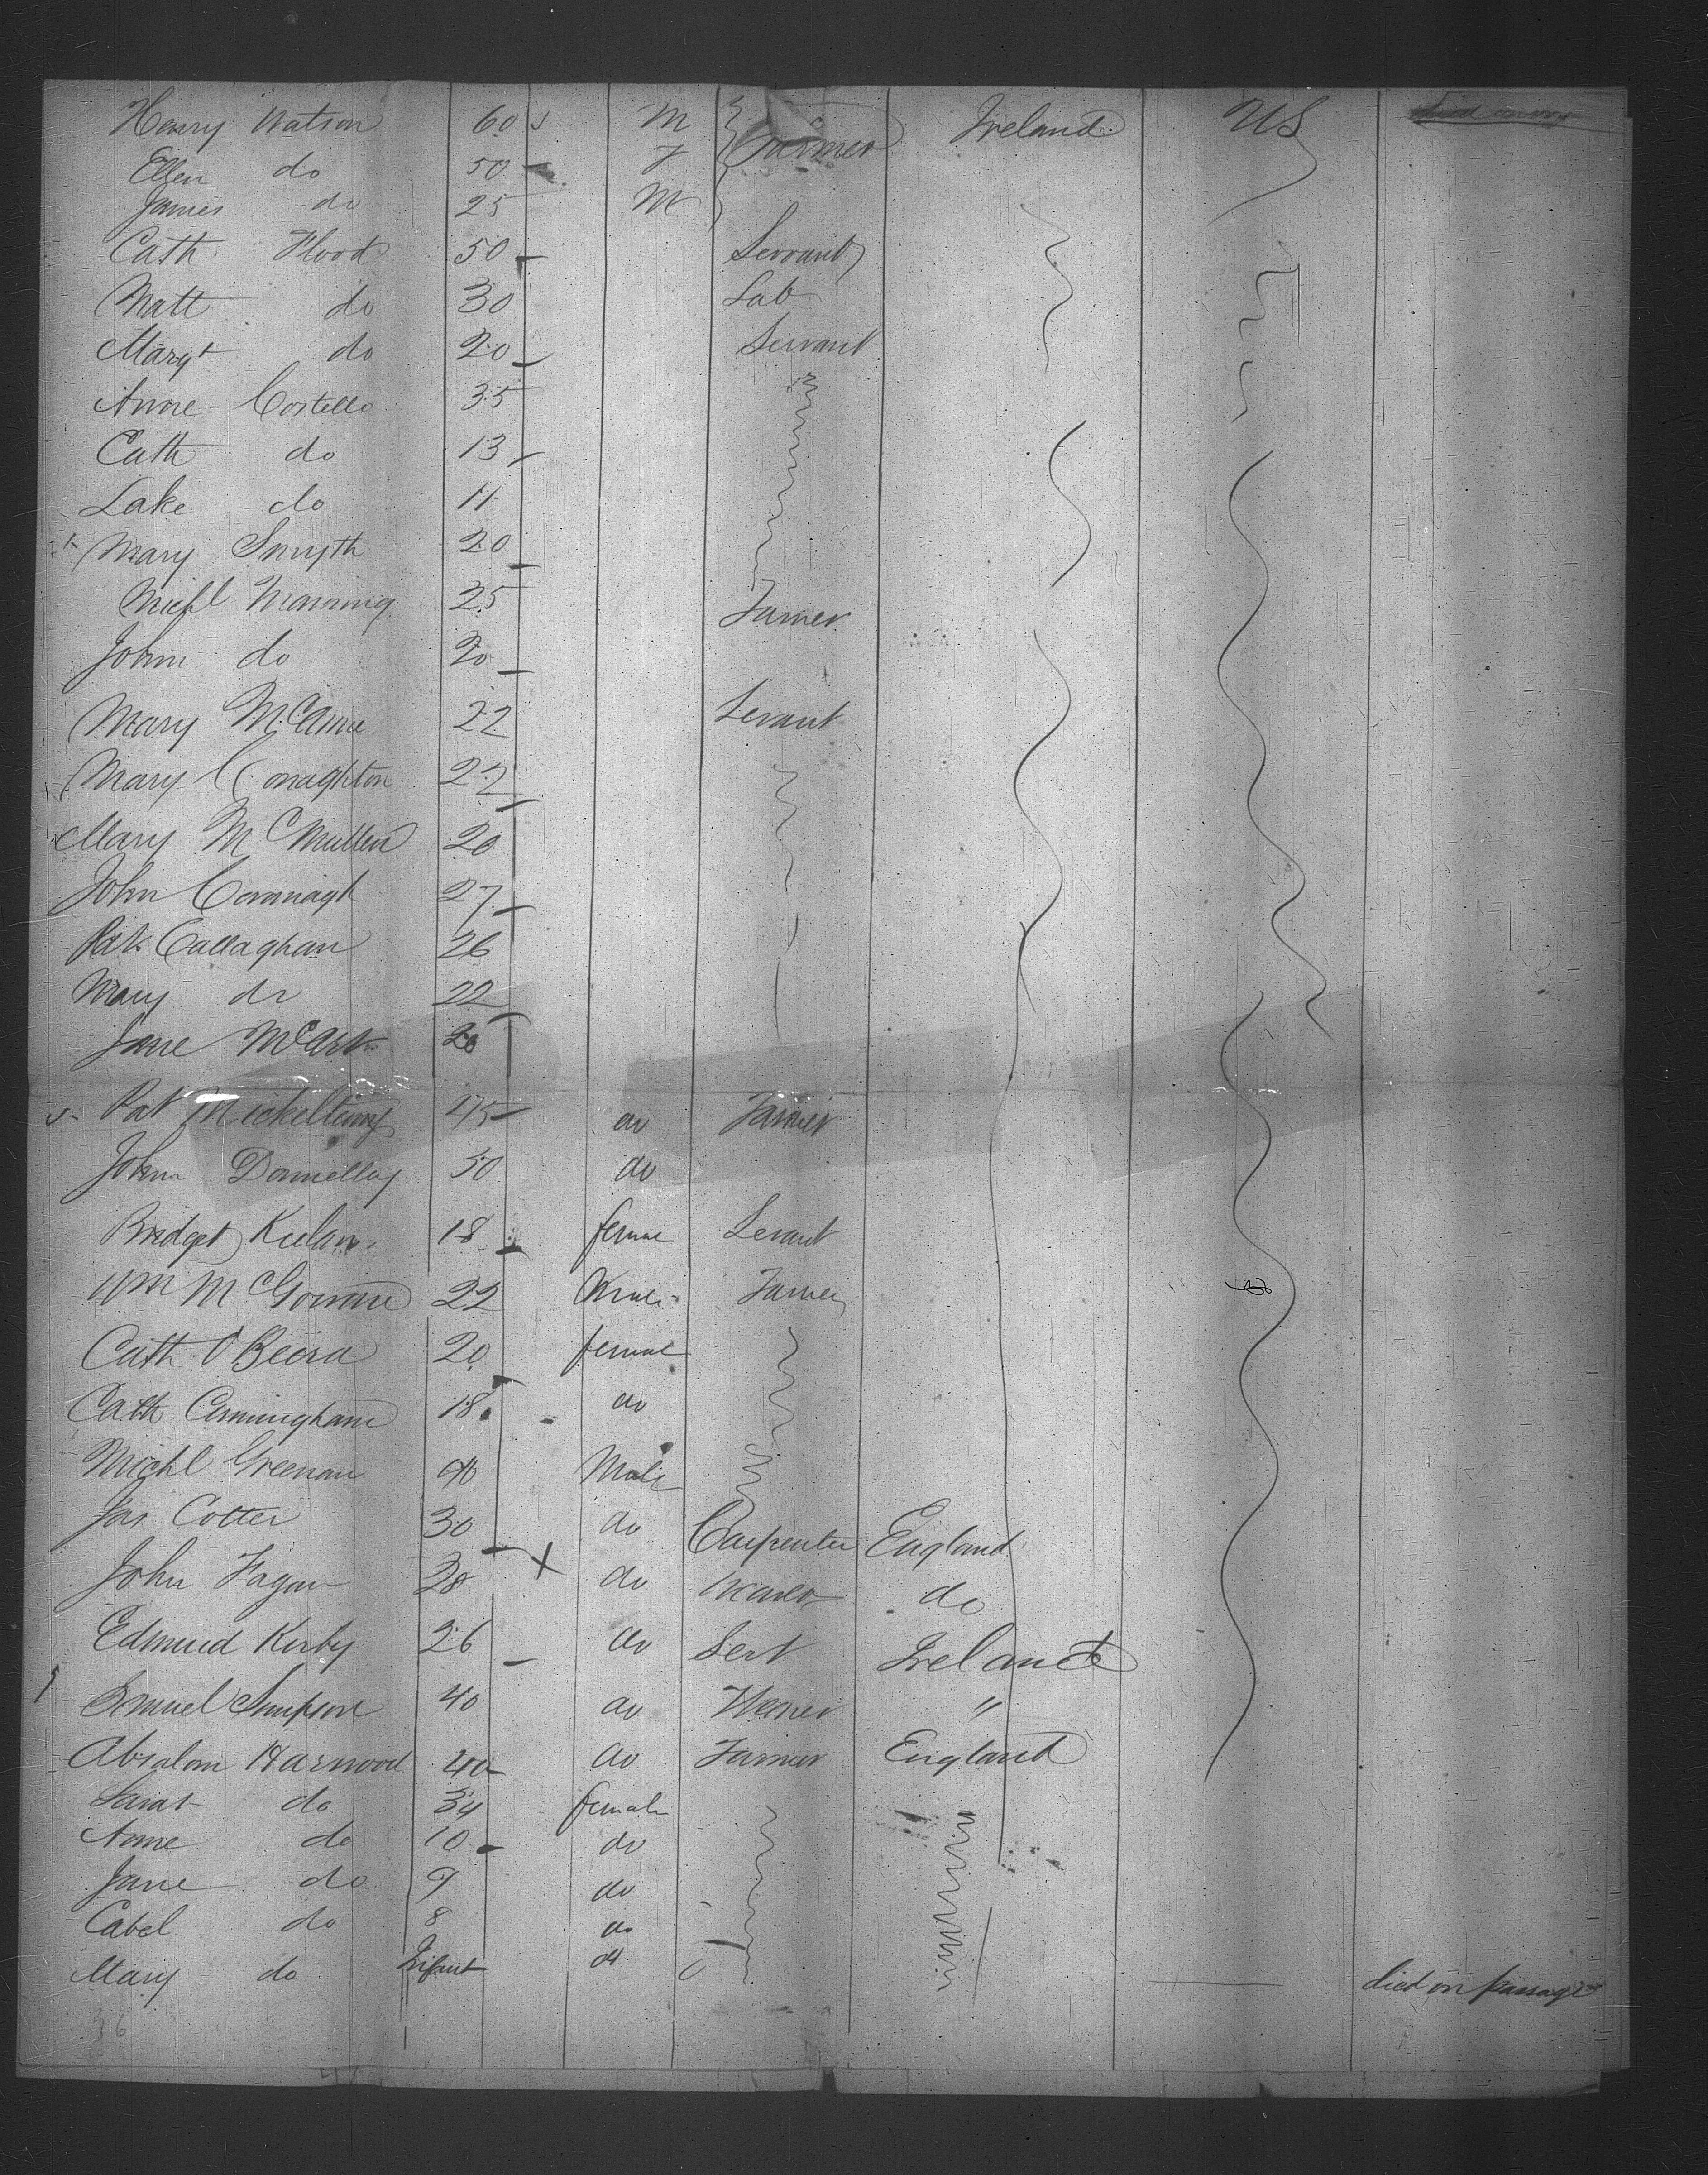 Henry Watson 60 M Farmer Ireland US
Ellen do 50 F
James do 25 M
Cath Flood 50 Servant
Matt do 30 Lab
Margt do 20 Servant
Anne Costello 35
Cath do 13
Lake do 11
Mary Smyth 20
Michl Manning 25 Farmer
John do 20
Mary McCanne 22 Servant
Mary Conaghton 22
Mary McMullen 20
John Cavanagh 27
Pat Callaghan 26
Mary do 22
Jane McArt 20
Pat 45 do Farmer
John Donnellay 50 do
Bridget 18 female Servant
Wm McGowan 22 Male Farmer
Cath O'Beirn 20 female
Cath Cunningham 18 do
Michl Greenan 40 Male
Jas Cotter 30 do Carpenter England
John Fagan 28 do do
Edmund Kirby 26 do Sert Ireland
Samuel Simpson 40 do Weaver "
Absalom Harwood 40 do Farmer England
Sarah do 34 female
Anne do 10 do
Jane do 9 do
Cabel do 8 do
Mary do Infant do died on passage
36